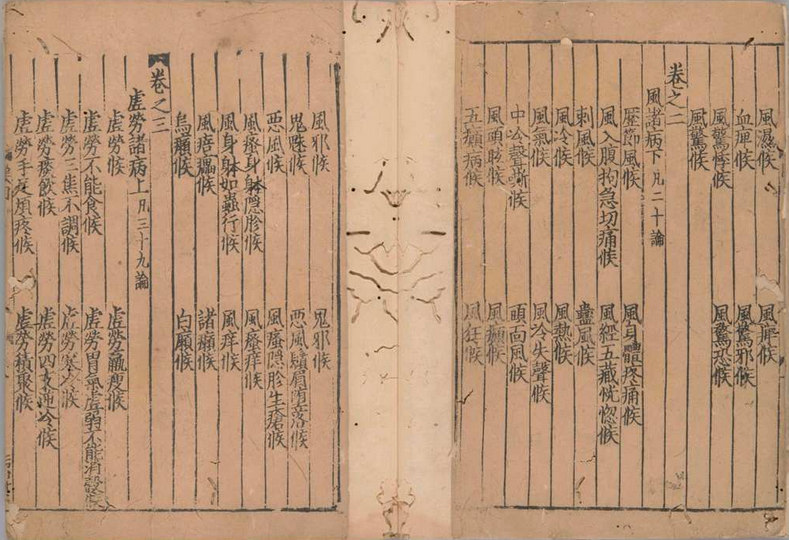 風濕候 風痺候
血痺候 風驚邪候
風驚悸候 風驚恐候
風驚候
卷之二
風諸病下凡二十論
歷節風候 風身體疼痛候
風入腹拘急切痛候 風經五藏恍惚候
刺風候 蠱風候
風冷候 風熱候
風氣候 風冷失聲候
中冷聲嘶候 頭面風候
風頭眩候 風癲候
五癲病候 風狂候
風邪候 鬼邪候
鬼魅候 惡風鬚眉墮落候
惡風候 風瘙隱胗生瘡候
風瘙身躰隱胗候 風瘙痒候
風身躰如蟲行候 風痒候
風痦㿔候 諸癩候
烏癩候 白癩候
卷之三
虛勞諸病上凡三十九論
虛勞候 虛勞羸瘦候
虛勞不能食候 虛勞胃氣虛弱不能消穀候
虛勞三焦不調候 虛勞寒冷候
虛勞痰飲候 虛勞四支逆冷候
虛勞手足煩疼候 虛勞積聚候